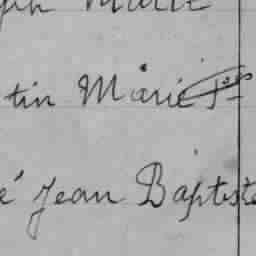 ph Marie
tin Marie Jph
é Jean Baptiste